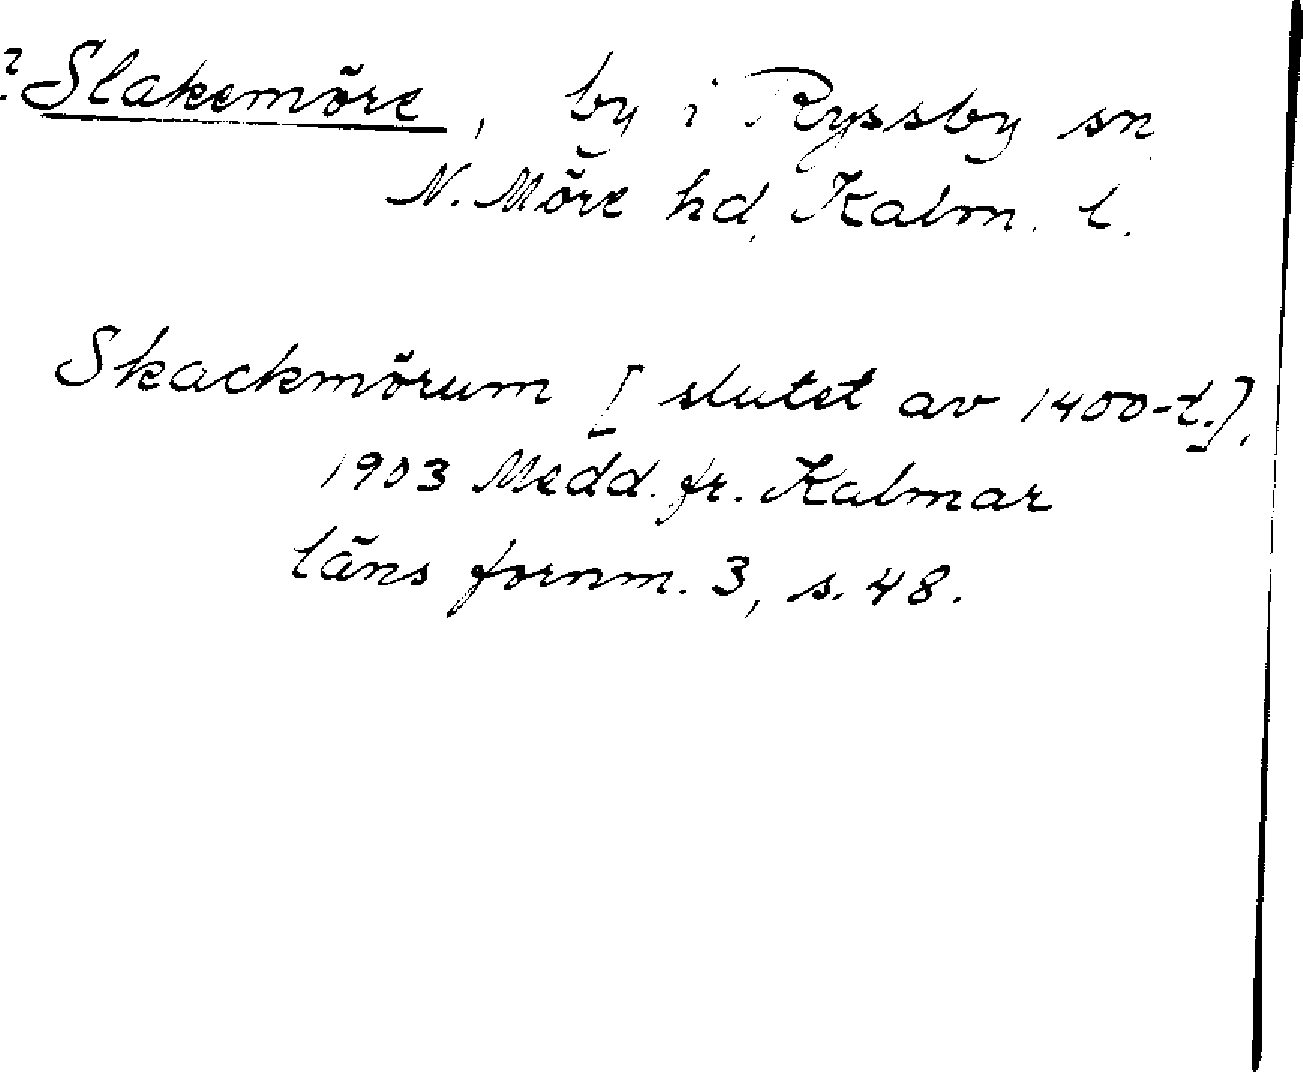 ? Slakemöre, by i Ryssby sn
N. Möre hd, Kalm. l.
Skackmörum [slutet av 1400-t.],
1903 Medd. fr. Kalmar
läns fornm. 3, s. 48.